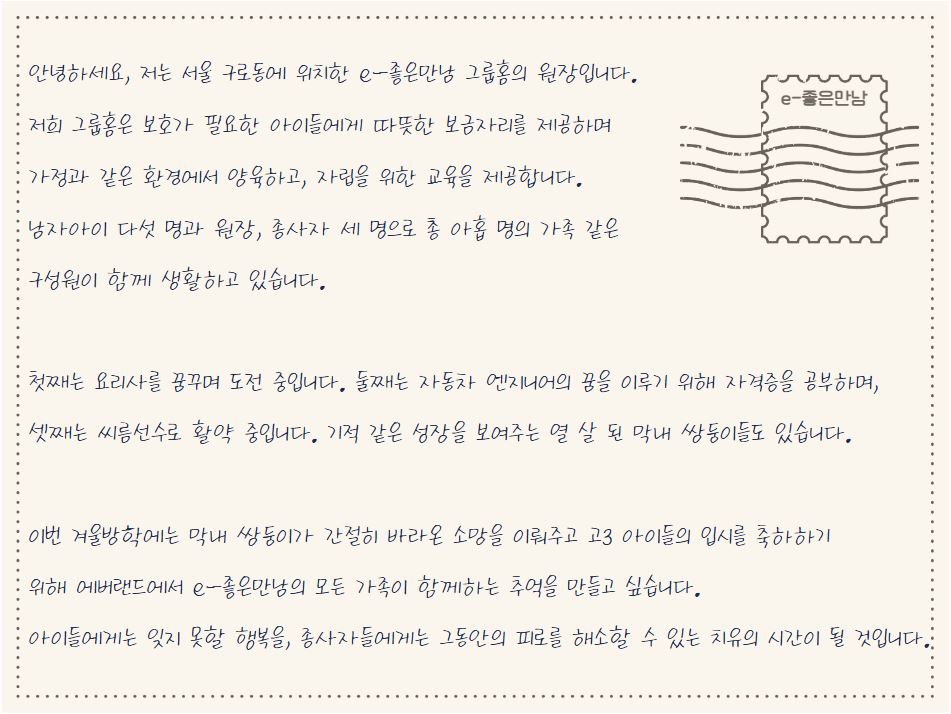 안녕하세요, 저는 서울 구로동에 위치한 e-좋은만남 그룹홈의 원장입니다.
e-좋은만남
저희 그룹홈은 보호가 필요한 아이들에게 따뜻한 보금자리를 제공하며
가정과 같은 환경에서 양육하고, 자립을 위한 교육을 제공합니다.
남자아이 다섯 명과 원장, 종사자 세 명으로 총 아홉 명의 가족 같은
구성원이 함께 생활하고 있습니다.
첫째는 요리사를 꿈꾸며 도전 중입니다. 둘째는 자동차 엔지니어의 꿈을 이루기 위해 자격증을 공부하며,
셋째는 씨름선수로 활약 중입니다. 기적 같은 성장을 보여주는 열 살 된 막내 쌍둥이들도 있습니다.
이번 겨울방학에는 막내 쌍둥이가 간절히 바라온 소망을 이뤄주고 고3 아이들의 입시를 축하하기
위해 에버랜드에서 e-좋은만남의 모든 가족이 함께하는 추억을 만들고 싶습니다.
아이들에게는 잊지 못할 행복을, 종사자들에게는 그동안의 피로를 해소할 수 있는 치유의 시간이 될 것입니다.